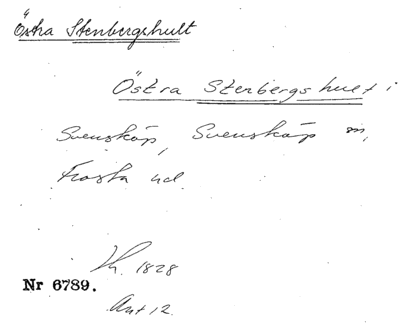 Östra Stenbergshult
Östra Stenbergshult i
Svenskåp, Svenskåp sn,
Frosta hd.
Kh. 1828
Nr 6789.
Ant 12.